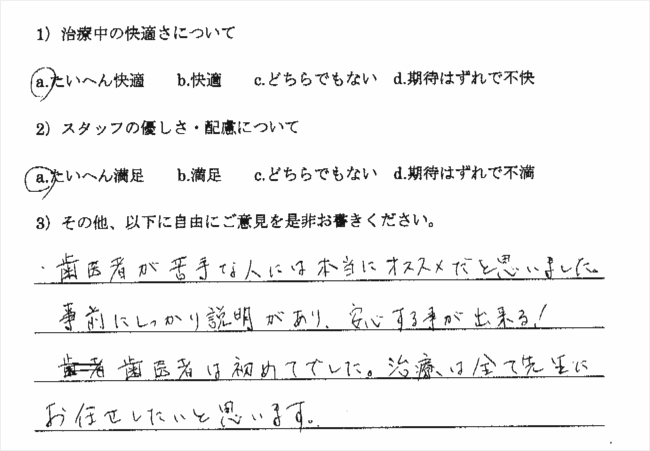 1）治療中の快適さについて
a.たいへん快適　b.快適　c.どちらでもない　d.期待はずれで不快
2）スタッフの優しさ・配慮について
a.たいへん満足　b.満足　c.どちらでもない　d.期待はずれで不満
3）その他、以下に自由にご意見を是非お書きください。
・歯医者が苦手な人には本当にオススメだと思いました。
事前にしっかり説明があり、安心する事が出来る！
歯医者は初めてでした。治療は全て先生に
お任せしたいと思います。